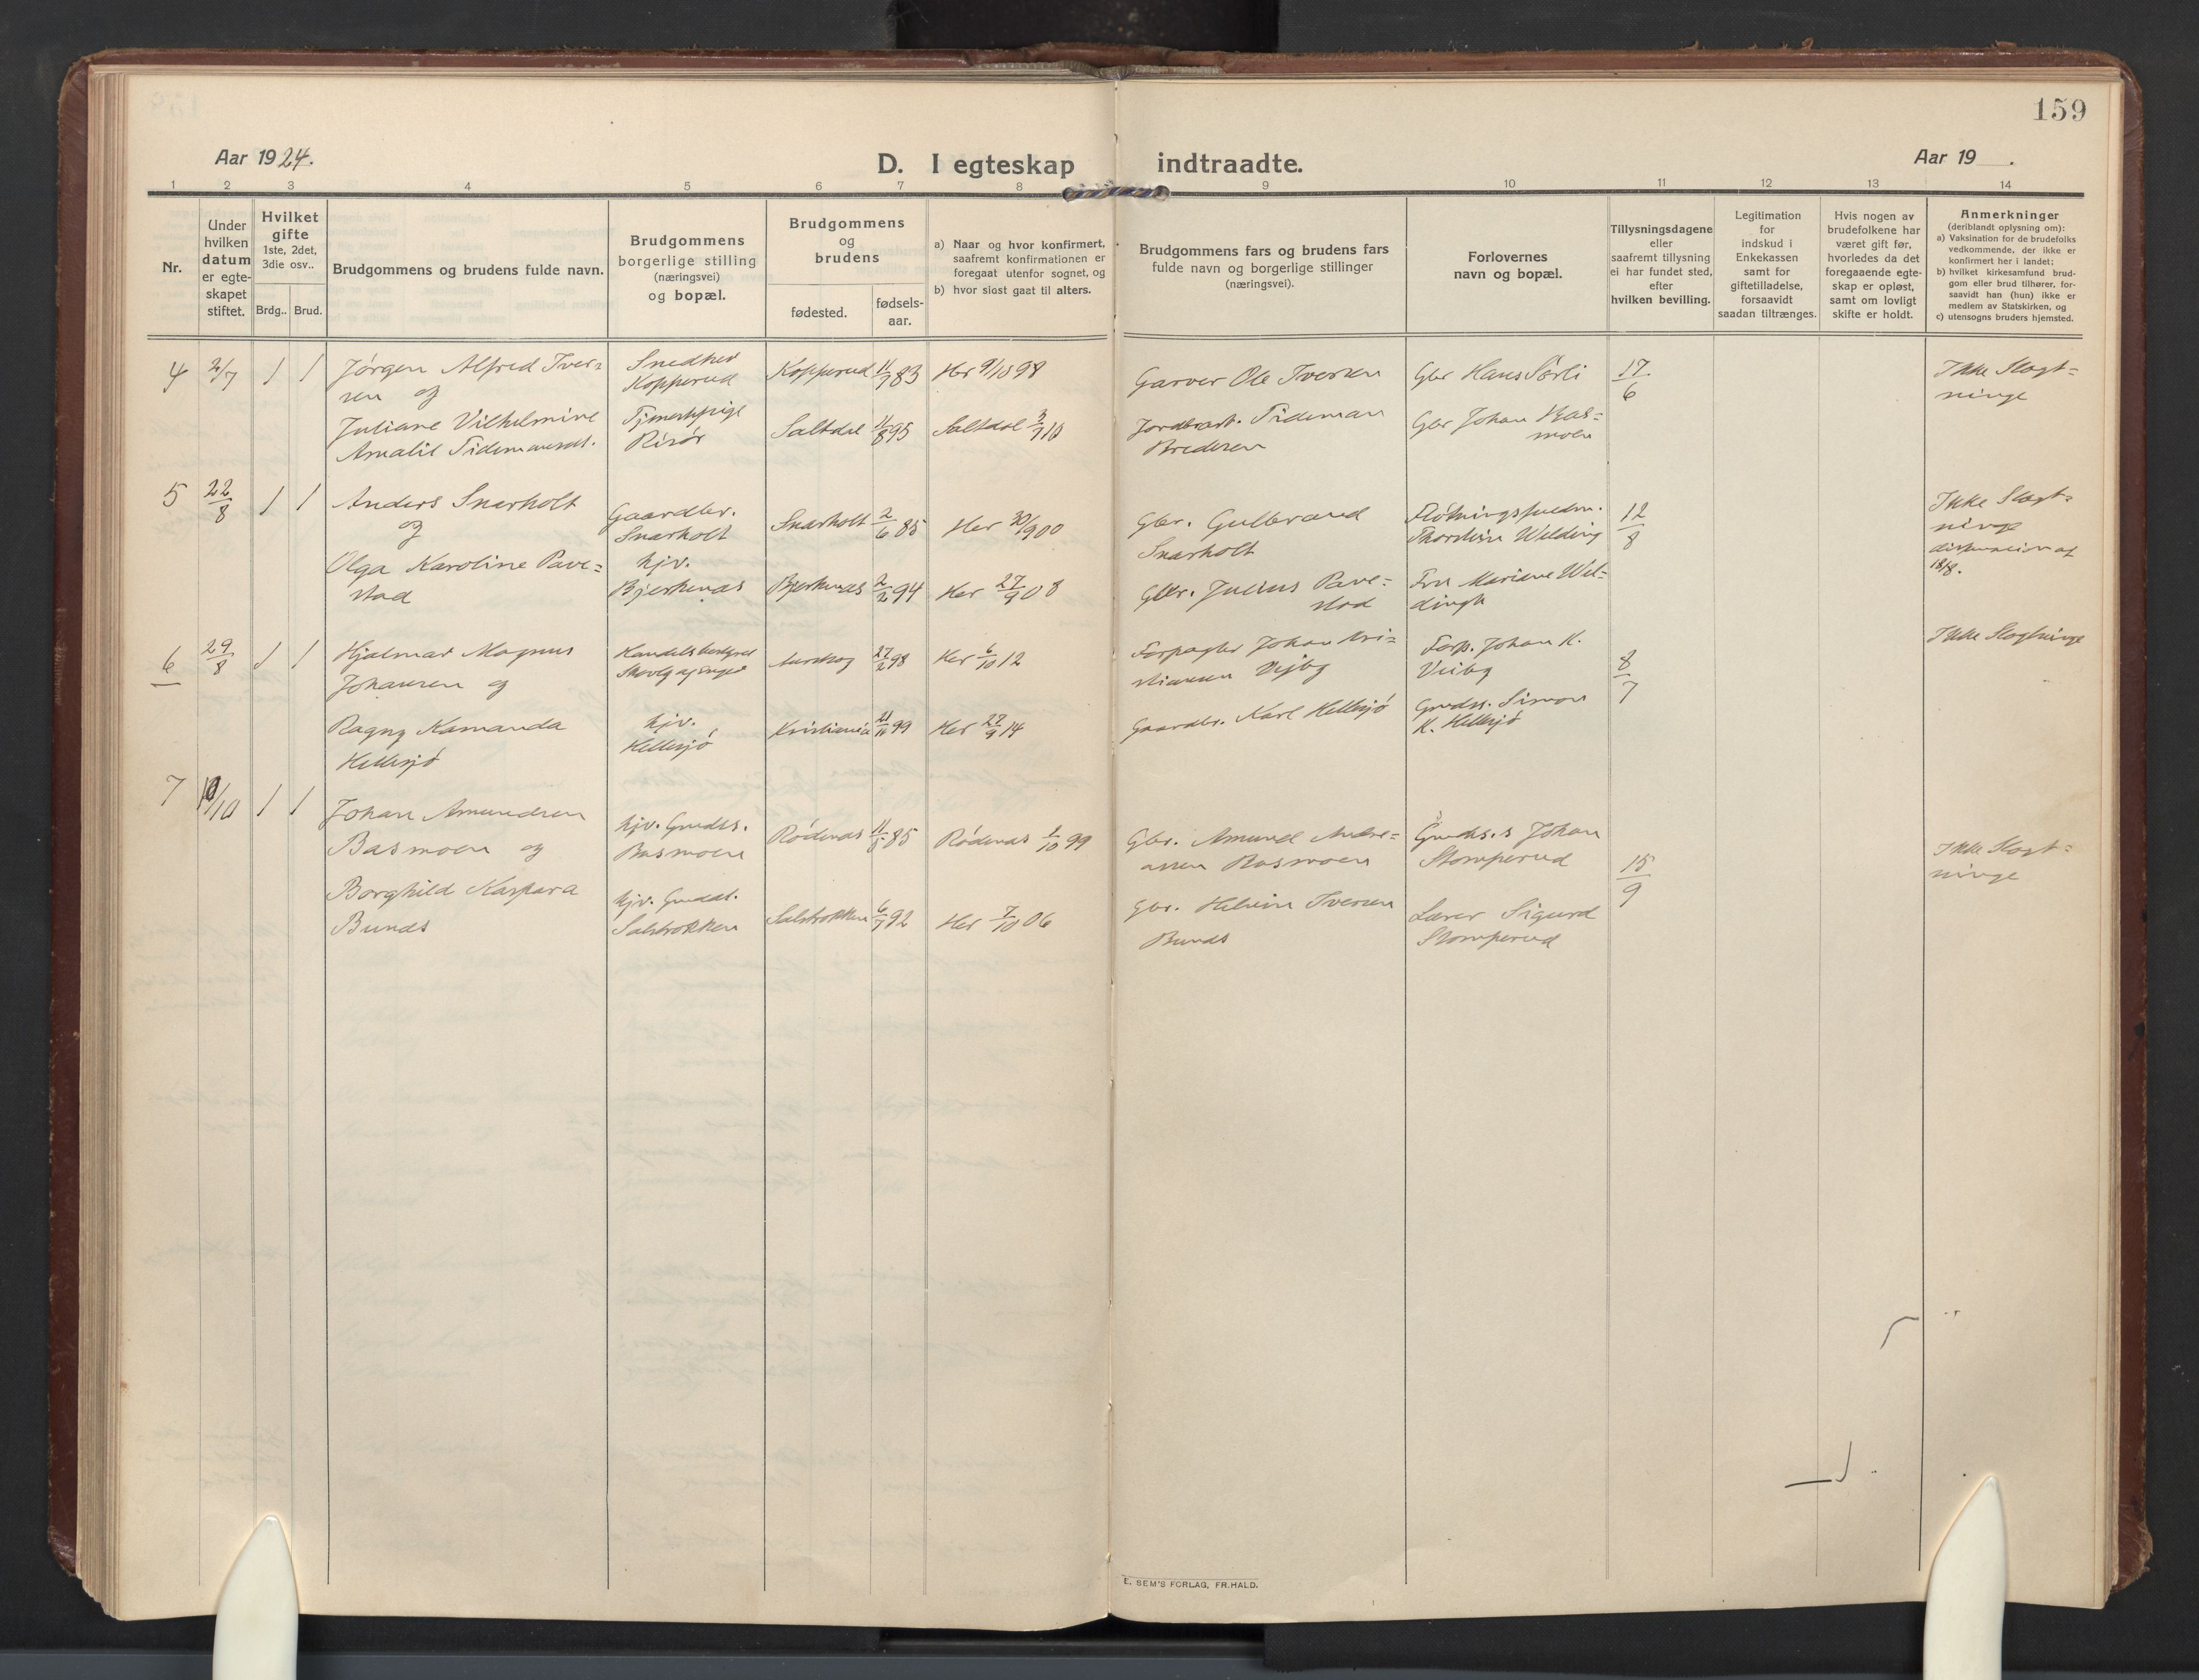 159
Aar 1924.
D. I egteskap indtraadte.
Aar 19 .
1 2 3 4 5 6 7 8 9 10 11 12 13 14
Nr.
Under
hvilken
datum
er egte-
skapet
stiftet.
Hvilket
gifte
1ste, 2det,
3die osv..
Brdg.. Brud.
Brudgommens og brudens fulde navn.
Brudgommens
borgerlige stilling
(næringsvei)
og bopæl.
Brudgommens
og
brudens
fødested.
fødsels-
aar.
a) Naar og hvor konfirmert,
saafremt konfirmationen er
foregaat utenfor sognet, og
b) hvor sidst gaat til alters.
Brudgommens fars og brudens fars
fulde navn og borgerlige stillinger
(næringsvei).
Forlovernes
navn og bopæl.
Tillysningsdagene
eller
saafremt tillysning
ei har fundet sted,
efter
hvilken bevilling.
Legitimation
for
indskud i
Enkekassen
samt for
giftetilladelse,
forsaavidt
saadan tiltrænges.
Hvis nogen av
brudefolkene har
været gift før,
hvorledes da det
foregaaende egte-
skap er opløst,
samt om lovligt
skifte er holdt.
Anmerkninger
(deriblandt oplysning om):
a) Vaksination for de brudefolks
vedkommende, der ikke er
konfirmert her i landet;
b) hvilket kirkesamfund brud-
gom eller brud tilhører, for-
saavidt han (hun) ikke er
medlem av Statskirken, og
c) utensogns bruders hjemsted.
4
2/7
1 1
Jørgen Alfred Iver=
sen og
Juliane Vilhelmine
Amalie Tidemansen.
Snedker
Kopperud
Tjenestepige
Risør
Kopperud 11/9 83
Saltdal 11/8 95
Her 9/10 98
Saltdal 3/7 10
Garver Ole Iversen
Jordbrukt. Tideman
Bredesen
Gbr Hans Sørli
Gbr Johan Bas=
moen
17/6
Ikke Slegt=
ninge
5
22/8
1 1
Anders Snarholt
og
Olga Karoline Pave=
stad
Gaardbr.
Snarholt
hjv.
Bjerkenas
Snarholt 2/6 85
Bjerkenas 2/2 94
Her 30/9 00
Her 27/9 08
Gbr. Gulbrand
Snarholt
Gbr. Julius Pave=
stad
Fløtningsfuldm.
Thorstein Wilding
Fru Mariane Wil=
dingh
12/8
Ikke Slegt=
ninge
18/8.
6
29/8
1 1
Hjalmar Magnus
Johansen og
Ragny Kamanda
Hellesjø
Handelsbestyrer
hjv.
Hellesjø
Aurskog 27/2 98
Kristiania 21/11 99
Her 6/10 12
Her 27/9 14
Forpagter Johan Kri=
stiansen Vejby
Gaardbr. Karl Hellesjø
Forp. Johan K.
Veiby
Grudss. Simon
K. Hellesjø
8/7
Ikke Slegtninge
7
10/10
1 1
Johan Amundsen
Basmoen og
Borghild Kaspara
Bunds
hjv. Grudss.
Basmoen
hjv. Gruddt.
Salsbrokken
Rødenas 11/8 85
Salsbrokken 6/7 92
Rødenas 1/10 99
Her 7/10 06
Gbr. Amund Andre=
assen Basmoen
Gbr. Helmin Iversen
Bunds
Grudss. s Johan
Stomperud
Lærer Sigurd
Stomperud
15/9
Ikke Slegt=
ninge
E. SEM'S FORLAG, FR.HALD.